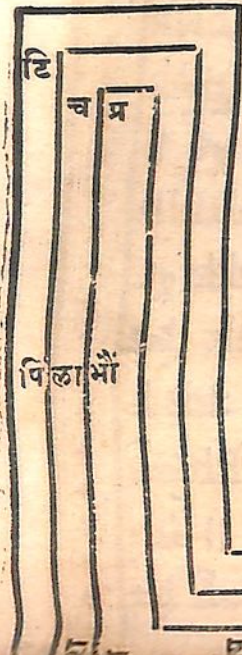 टि
च प्र
पिलाभौं